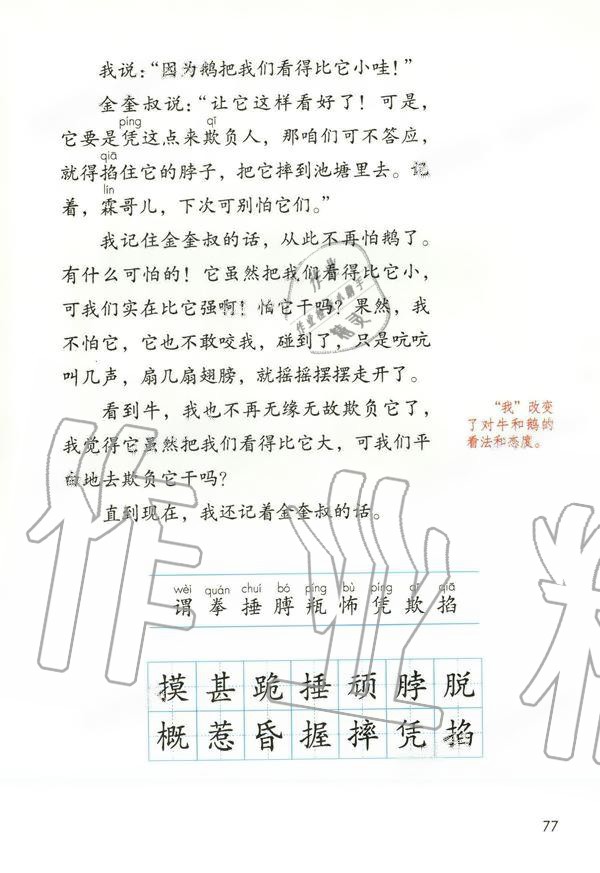 我说：“因为鹅把我们看得比它小哇！”
金奎叔说：“让它这样看好了！可是，
píng qī
它要是凭这点来欺负人，那咱们可不答应，
qiā
就得掐住它的脖子，把它摔到池塘里去。记
lín
着，霖哥儿，下次可别怕它们。”
我记住金奎叔的话，从此不再怕鹅了。
有什么可怕的！它虽然把我们看得比它小，
可我们实在比它强啊！怕它干吗？果然，我
不怕它，它也不敢咬我，碰到了，只是吭吭
叫几声，扇几扇翅膀，就摇摇摆摆走开了。
看到牛，我也不再无缘无故欺负它了，
我觉得它虽然把我们看得比它大，可我们平
白地去欺负它干吗？
直到现在，我还记着金奎叔的话。
“我”改变
了对牛和鹅的
看法和态度。
wèi quán chuí bó píng bù píng qī qiā
谓 拳 捶 膊 瓶 怖 凭 欺 掐
摸 甚 跪 捶 顽 脖 脱
概 惹 昏 握 摔 凭 掐
77
作业精